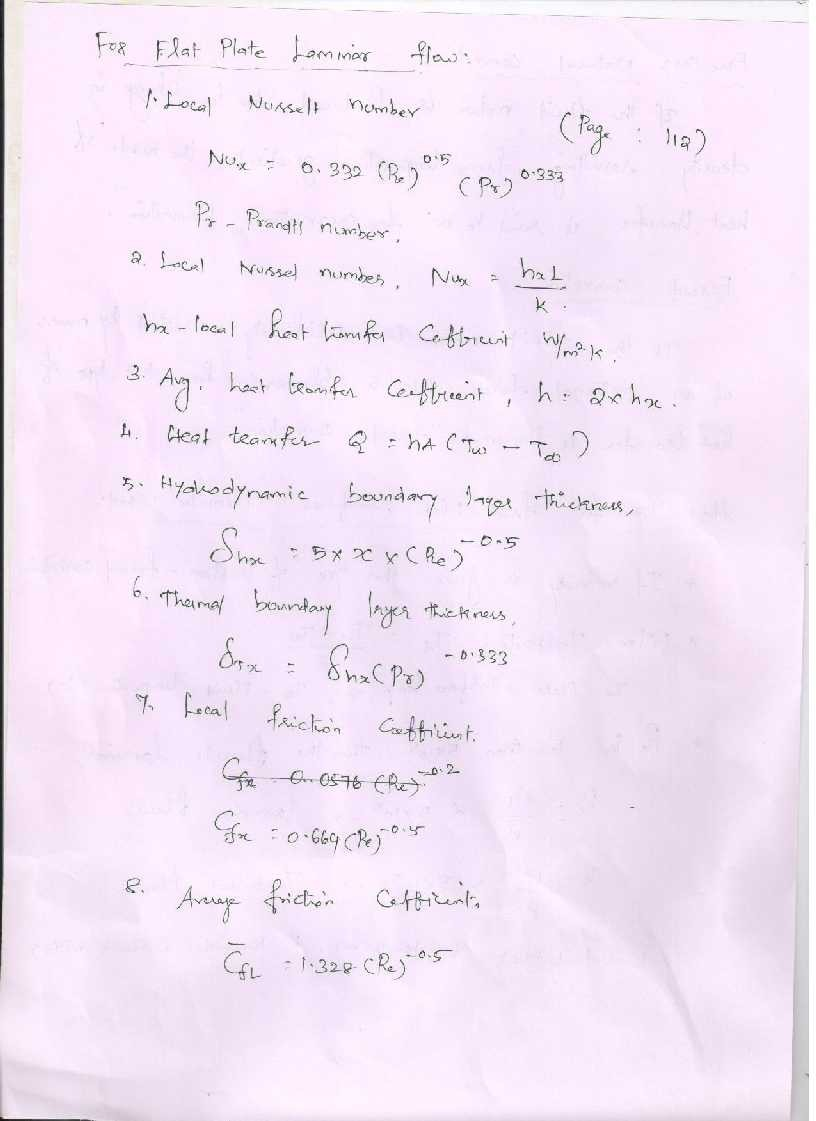 For Flat Plate Laminar flow:
1. Local Nusselt number
(Page : 112)
Nux = 0.332 (Re)^0.5 (Pr)^0.333
Pr - Prandtl number.
2. Local Nussel number, Nux = hxL / K.
hx - local heat transfer Coefficient W/m²K.
3. Avg. heat transfer Coefficient, h = 2 x hx.
4. Heat transfer Q = hA (Tw - T∞)
5. Hydrodynamic boundary layer thickness,
δhx = 5 x x x (Re)^-0.5
6. Thermal boundary layer thickness,
δTx = δhx (Pr)^-0.333
7. Local friction Coefficient.
Cfx = 0.0576 (Re)^-0.2
Cfx = 0.664 (Re)^-0.5
8. Average friction Coefficient,
C̄fL = 1.328 (Re)^-0.5